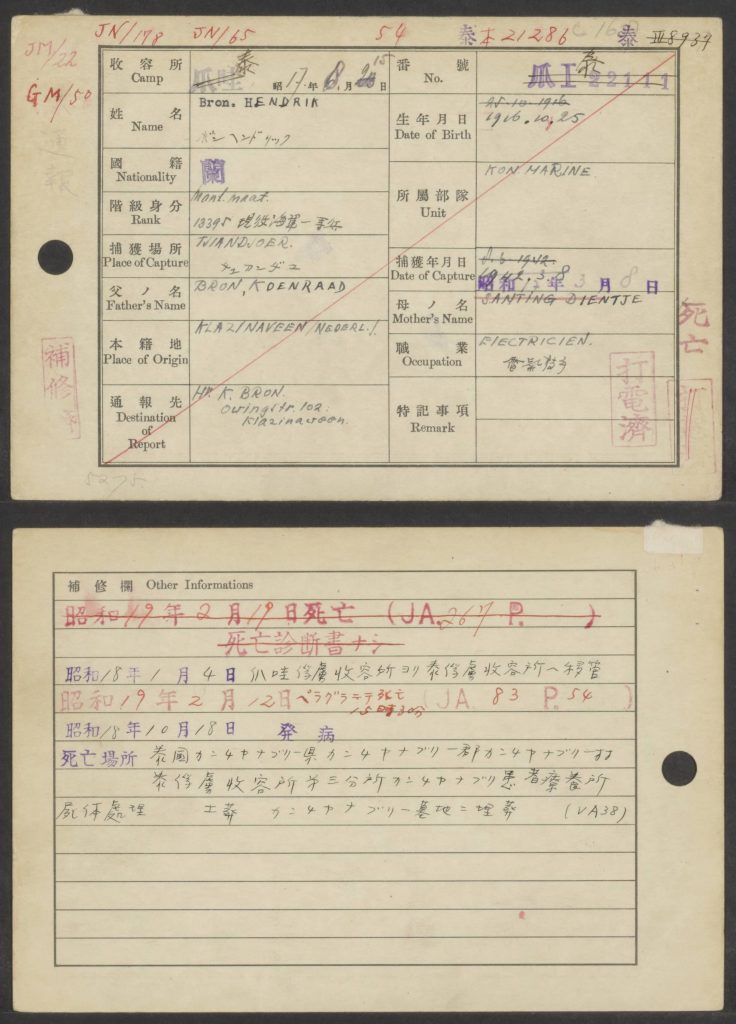 JM/22 JN/178 JN/65 54 泰本21286 泰 III8937
GM/50
收容所 Camp 爪哇 泰 昭17年8月15日
番號 No. 泰 爪I 22111
姓名 Name Bron. HENDRIK
生年月日 Date of Birth 25.10.1916
1916.10.25
國籍 Nationality 蘭
所屬部隊 Unit KON. MARINE.
階級身分 Rank Mont. maat.
18395
捕獲場所 Place of Capture TJIANDJOER.
チェカンヂュ
捕獲年月日 Date of Capture 1942.3.8
昭和17年3月8日
父ノ名 Father's Name BRON, KOENRAAD
母ノ名 Mother's Name SANTING DIENTJE
本籍地 Place of Origin KLAZINAVEEN NEDERL.
職業 Occupation ElECTRICIEN.
通報先 Destination of Report Hr. K. BRON.
102.
Klazinaveen.
特記事項 Remark
通報
補修濟
死亡
打電濟
5275
補修欄 Other Informations
昭和19年2月19日死亡 (JA.267 P. )
死亡診断書ナシ
昭和18年1月4日 爪哇俘虜收容所ヨリ泰俘虜收容所ヘ移管
昭和19年2月12日ペラグラニテ死亡 (JA. 83 P.54 )
15時30分
昭和18年10月18日 発病
死亡場所 泰國カンチヤナブリー県カンチヤナブリー郡カンチヤナブリー村
泰俘虜收容所第三分所カンチヤナブリ患者療養所
屍体處理 土葬 カンチヤナブリー墓地ニ埋葬 (VA38)